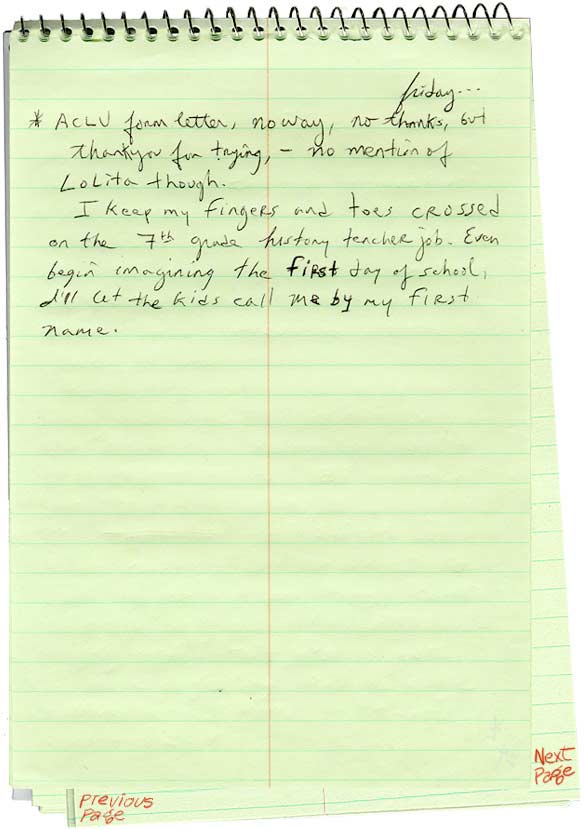 friday...
* ACLU form letter, no way, no thanks, but
thankyou for trying, – no mention of
Lolita though.
I keep my fingers and toes crossed
on the 7th grade history teacher job. Even
begin imagining the first day of school,
I'll let the kids call me by my first
name.
Next
Page
Previous
Page